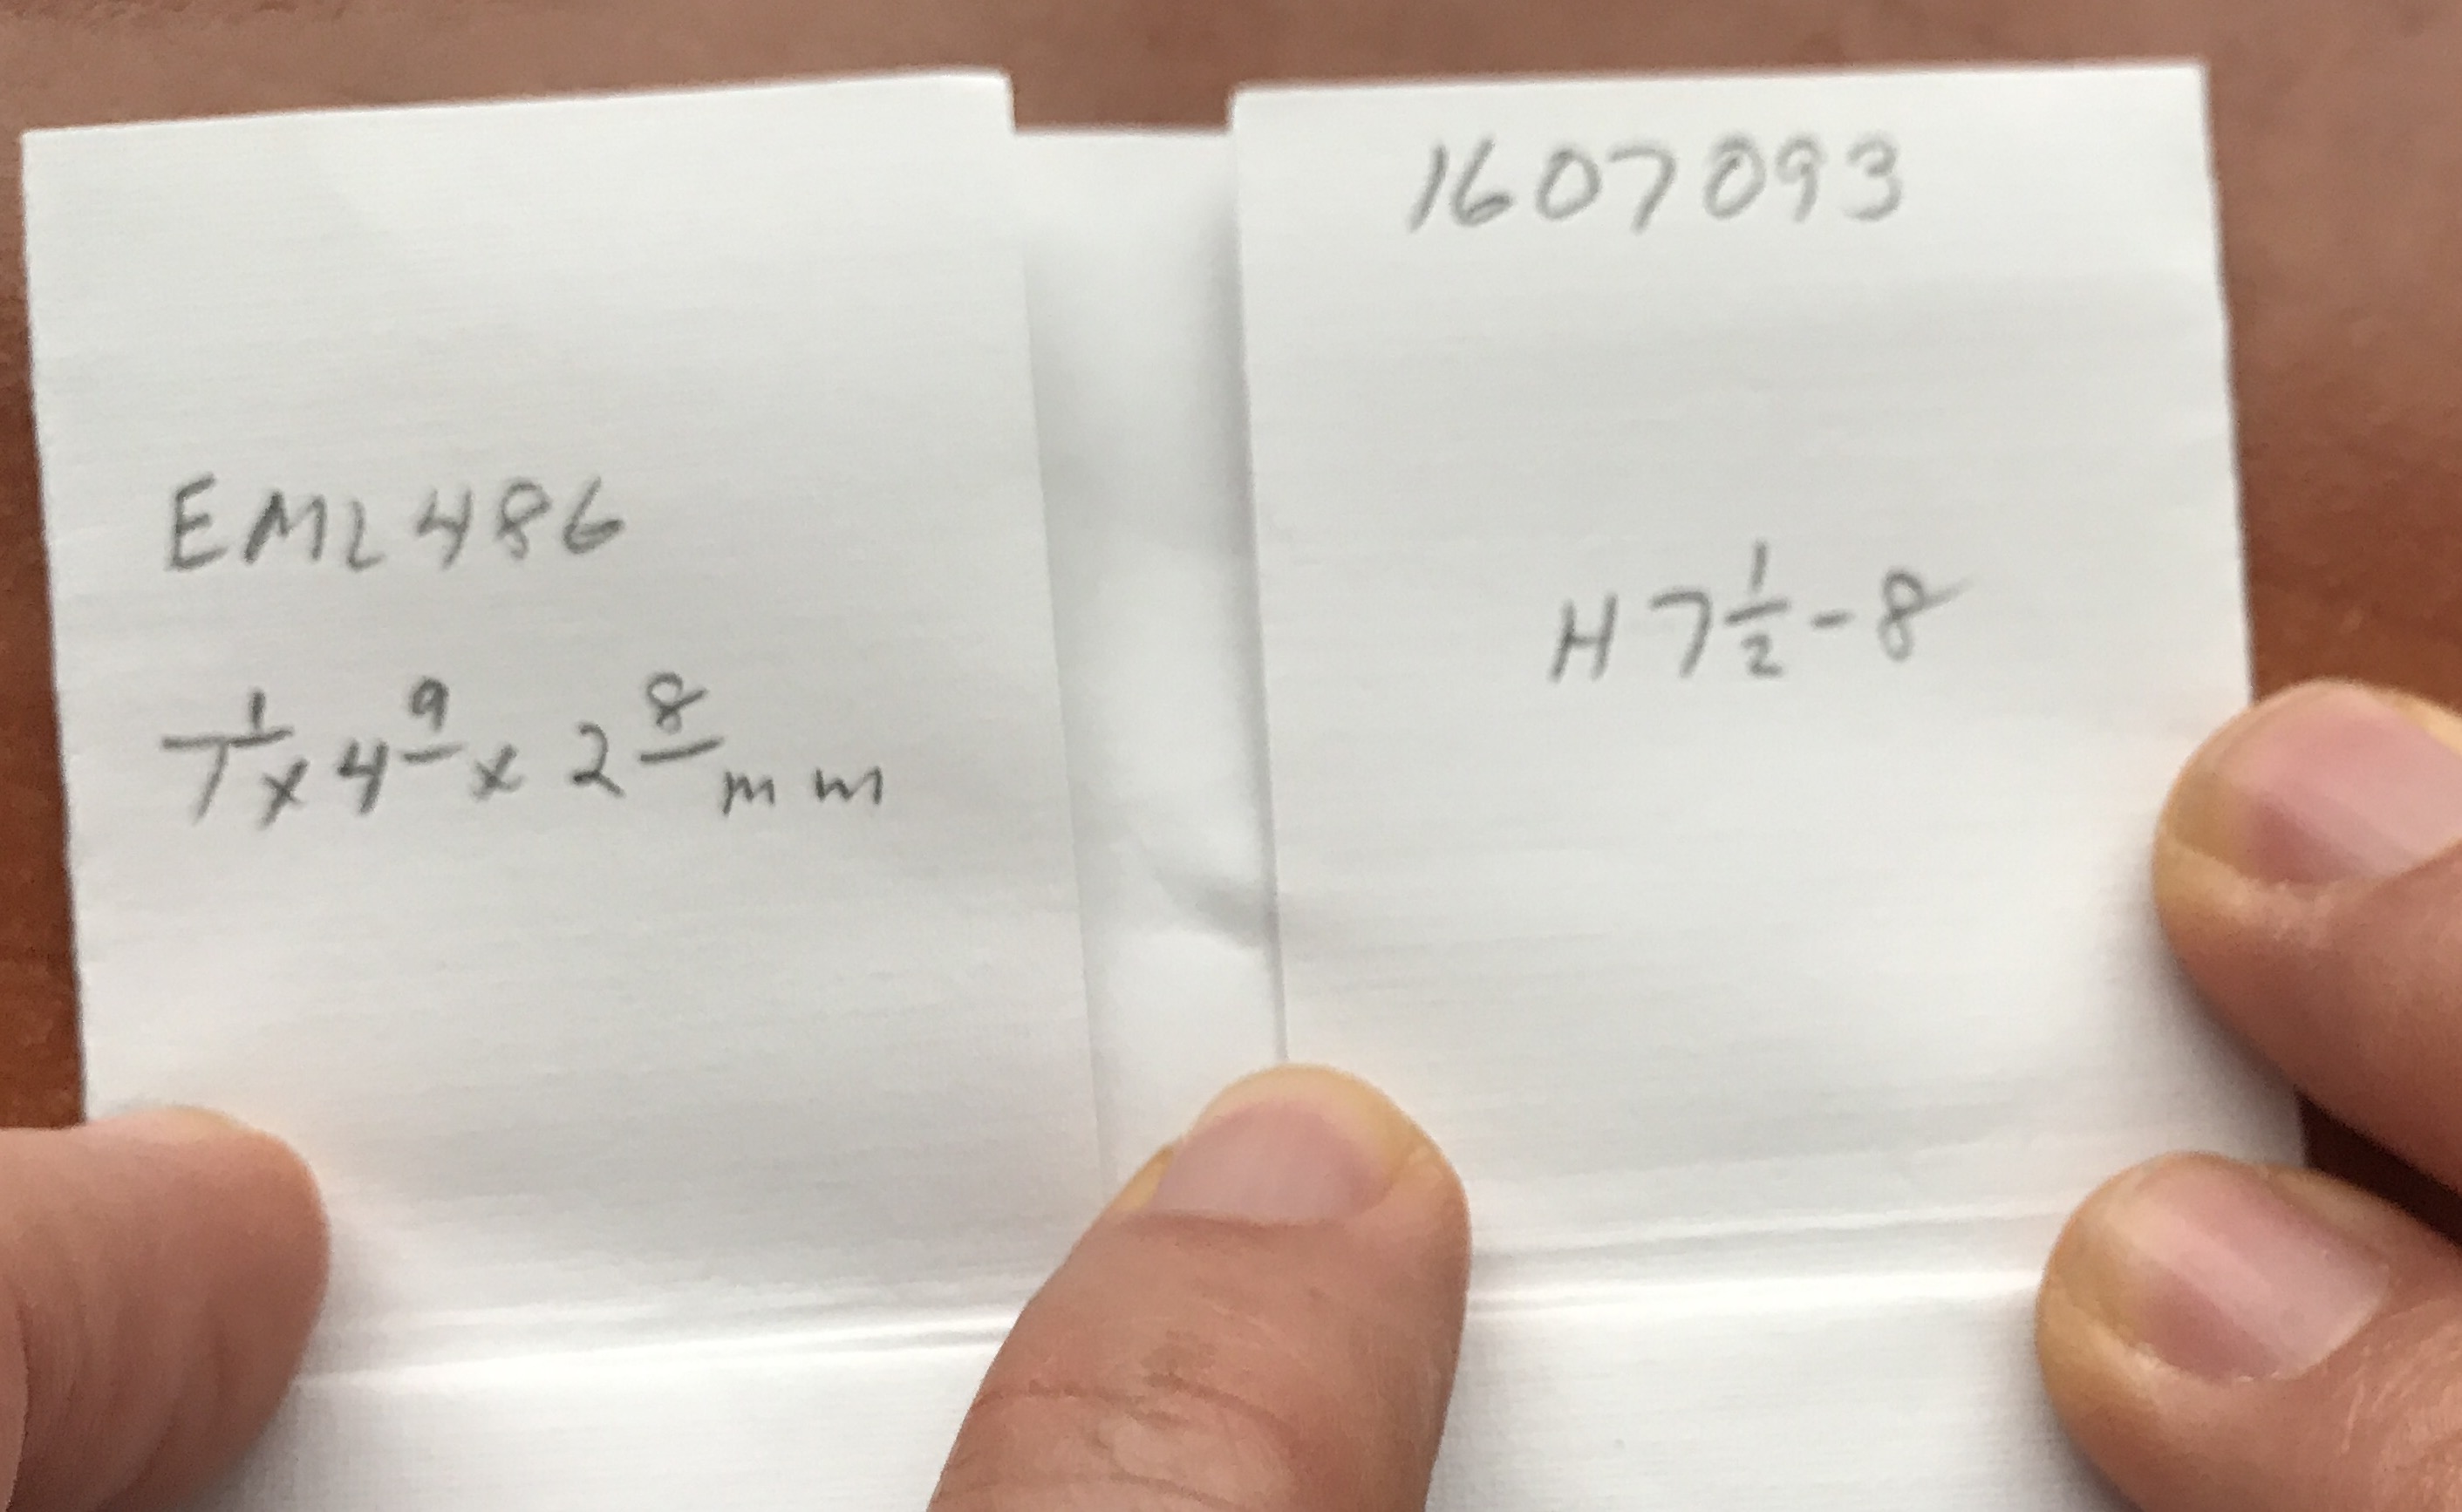 EML486
7 1/ x 4 9/ x 2 8/ mm
1607093
H 7 1/2 - 8